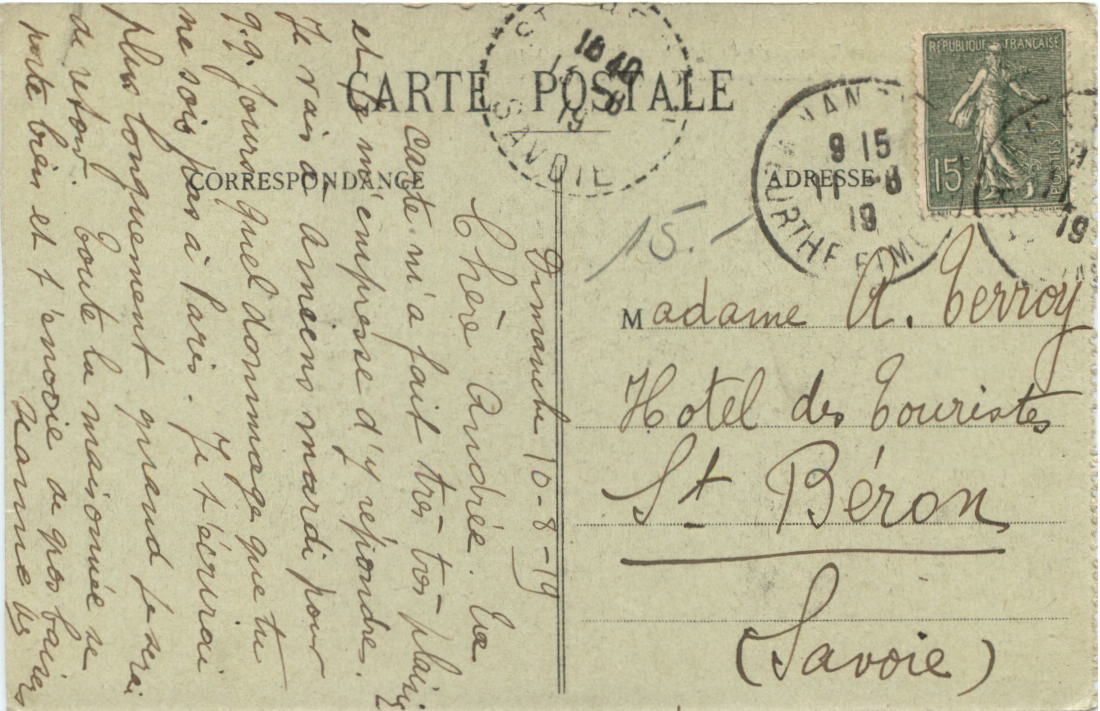 CARTE POSTALE
CORRESPONDANCE
Dimanche 10-8-19
Chère Andrée. Ta
carte m'a fait très très plaisir
et je m'empresse d'y répondre.
Je vais à Amiens mardi pour
q.q. jours quel dommage que tu
ne sois pas à Paris. Je t'écrirai
plus longuement quand je serai
de retour. Toute la maisonnée se
porte bien et t'envoie de gros baisers
Jeanne
ADRESSE
15.-
Madame A. Terroy
Hotel des Touristes
St Béron
(Savoie)
REPUBLIQUE FRANÇAISE
15c
POSTES
9 15
11 -8
19
URTHE ET MO
18 40
8
19
SAVOIE
19